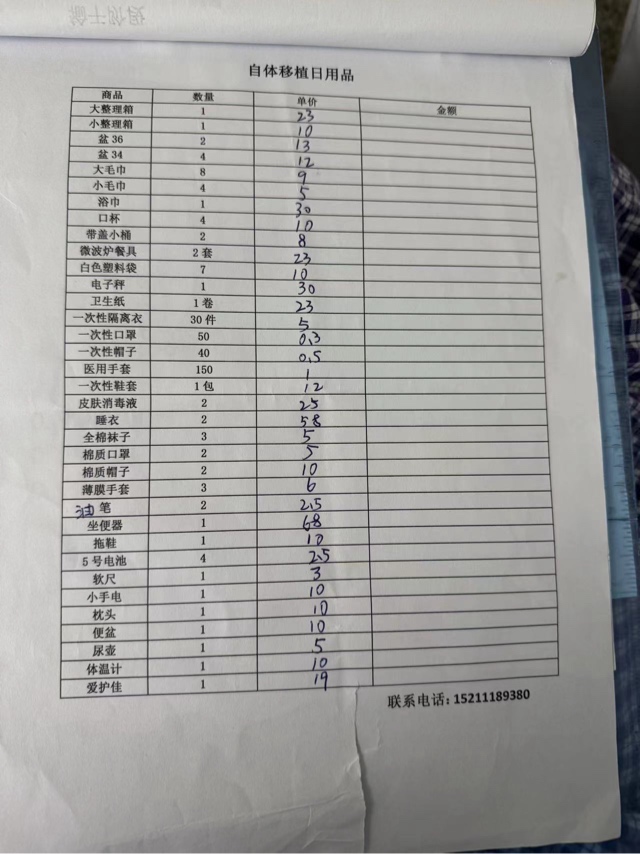 自体移植日用品
商品 数量 单价 金额
大整理箱 1 23
小整理箱 1 10
盆 36 2 13
盆 34 4 12
大毛巾 8 9
小毛巾 4 5
浴巾 1 30
口杯 4 10
带盖小桶 2 8
微波炉餐具 2 套 23
白色塑料袋 7 10
电子秤 1 30
卫生纸 1 卷 23
一次性隔离衣 30 件 5
一次性口罩 50 0.3
一次性帽子 40 0.5
医用手套 150 1
一次性鞋套 1 包 12
皮肤消毒液 2 25
睡衣 2 58
全棉袜子 3 5
棉质口罩 2 5
棉质帽子 2 10
薄膜手套 3 6
油 笔 2 2.5
坐便器 1 68
拖鞋 1 10
5 号电池 4 2.5
软尺 1 3
小手电 1 10
枕头 1 10
便盆 1 10
尿壶 1 5
体温计 1 10
爱护佳 1 19
联系电话: 15211189380